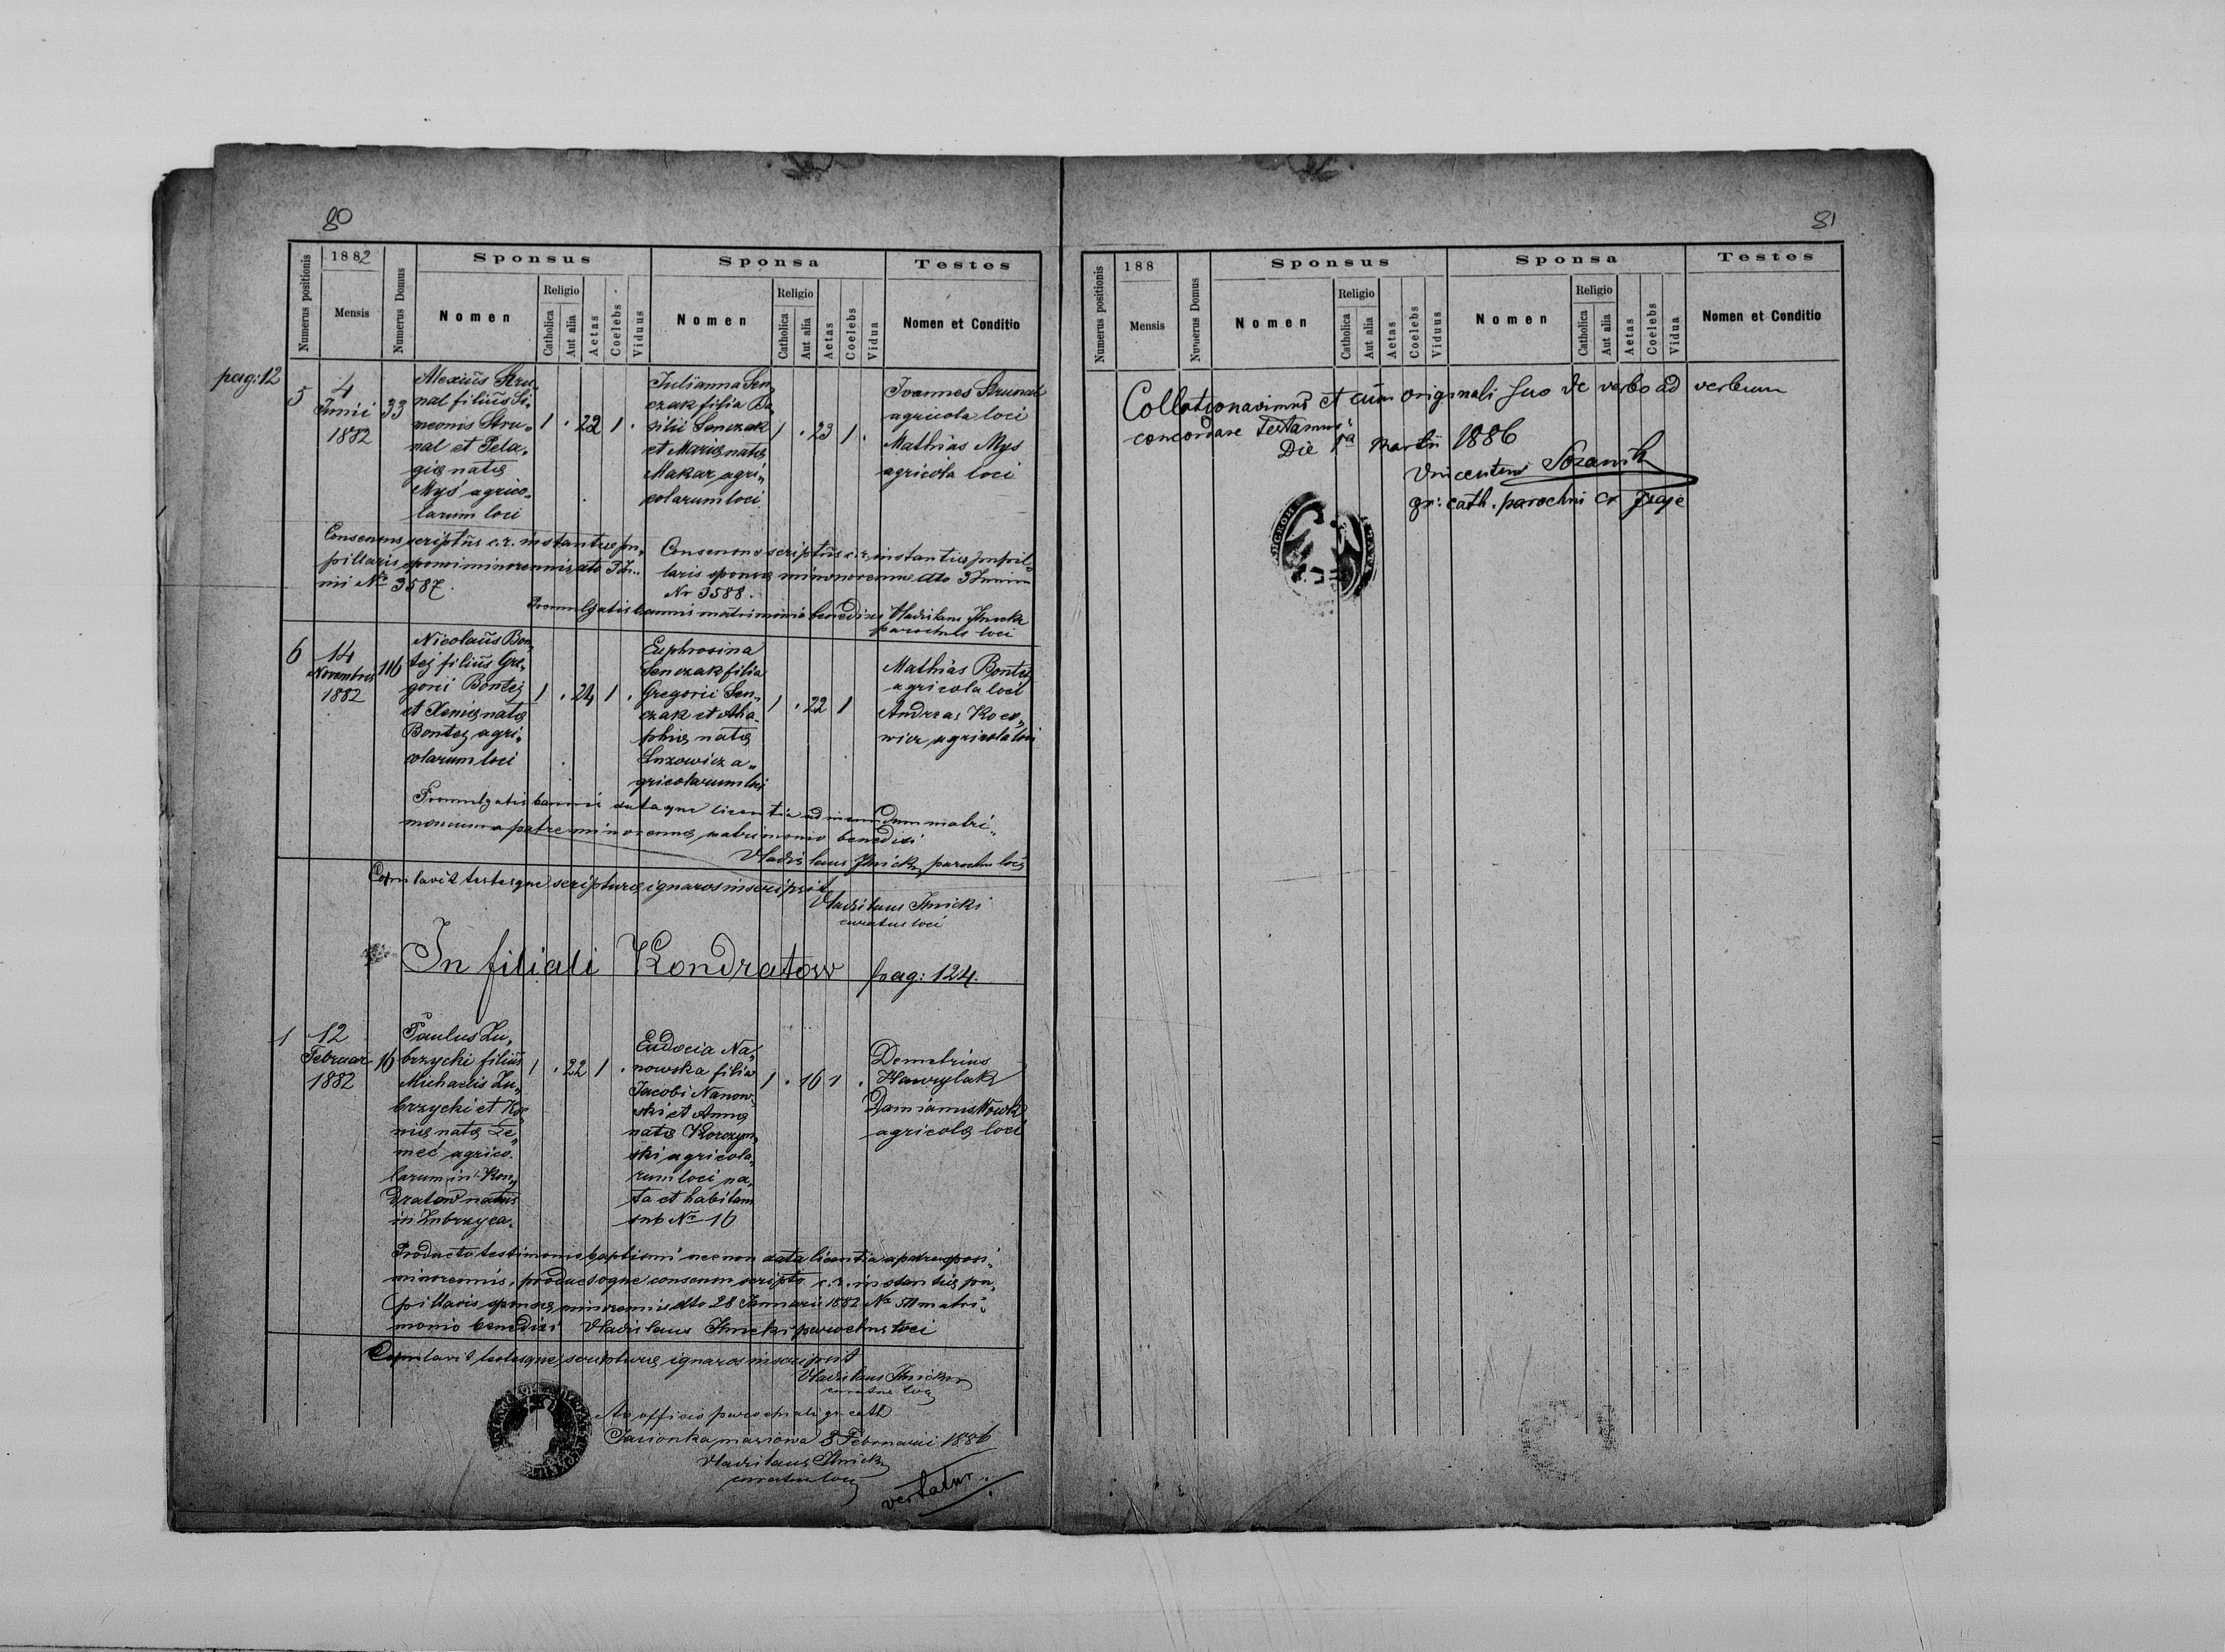 80
Numerus positionis
1882
Mensis
Numerus Domus
Sponsus
Nomen
Religio
Catholica
Aut alia
Aetas
Coelebs
Viduus
Sponsa
Nomen
Religio
Catholica
Aut alia
Aetas
Coelebs
Vidua
Testes
Nomen et Conditio
pag: 12
5
4
Junii
1882
33
Alexius Stru„
nal filius Si„
meonis Stru„
nal et Pela„
giæ natæ
Myś agrico„
larum loci
1 . 22 1 .
Julianna Sen„
czak filia Ba„
silii Senczak
et Mariæ natæ
Makar agri„
colarum loci
1 . 23 1 .
Joannes Strunal
agricola loci
Mathias Mys
agricola loci
Consensus scriptus c.r. instantiæ pu„
pillaris sponsi minorennis dto 3 Ju„
nii No 3587.
Consensus scriptus c.r. instantiæ pupil„
laris sponsæ minorennis dto 3 Junii
Nr 3588.
Promulgatis bannis matrimonio benedixi Vladislaus Ilnicki
parochus loci
6
14
Novembris
1882
116
Nicolaus Bon„
tej filius Gre„
gorii Bontej
et Xeniæ natæ
Bontej agri„
colarum loci
1 . 24 1 .
Euphrosina
Senczak filia
Gregorii Sen„
czak et Aha„
phiæ natæ
Luzowicz a„
gricolarum loci
1 . 22 1
Mathias Bontej
agricola loci
Andreas Koco„
wicz agricola loci
Promulgatis bannis dataque licentia ad ineundum matri„
monium a patre minorennæ matrimonio benedixi
Vladislaus Ilnicki parochus loci
Copulavit testesque scripturæ ignaros inscripsit
Vladislaus Ilnicki
curatus loci
In filiali Kondratow pag: 124.
1
12
Februar
1882
16
Paulus Zu„
brzycki filius
Michaelis Zu„
brzycki et Xe„
niæ natæ Le„
meć agrico„
larum in Kon„
dratow natus
in Zubrzyca.
1 . 22 1 .
Eudocia Na„
nowska filia
Jacobi Nanow„
ski et Annæ
natæ Korczyn„
ski agricola„
rum loci na„
ta et habitans
sub No 16
1 . 16 1 .
Demetrius
Hawrylak
Damianus
agricolæ loci
Producto testimonio baptismi necnon data licentia a patre sponsi
minorennis, productoque consensu scripto c.r. instantiæ pu„
pillaris sponsæ minorennis dto 28 Januarii 1882 No matri„
monio benedixi Vladislaus Ilnicki parochus loci
Copulavit testesque scripturæ ignaros inscripsit
Vladislaus Ilnicki
curatus loci
Ab officio parochiali gr. cath
Jasionka masiowa 8 Februarii 1886
Vladislaus Ilnicki
curatus loci
vertatur.
81
Numerus positionis
188
Mensis
Numerus Domus
Sponsus
Nomen
Religio
Catholica
Aut alia
Aetas
Coelebs
Viduus
Sponsa
Nomen
Religio
Catholica
Aut alia
Aetas
Coelebs
Vidua
Testes
Nomen et Conditio
Collationavimus et cum originali suo de verbo ad verbum
concordare testamur
Die 1a Martii 1886
Vincentius
gr: cath. parochus